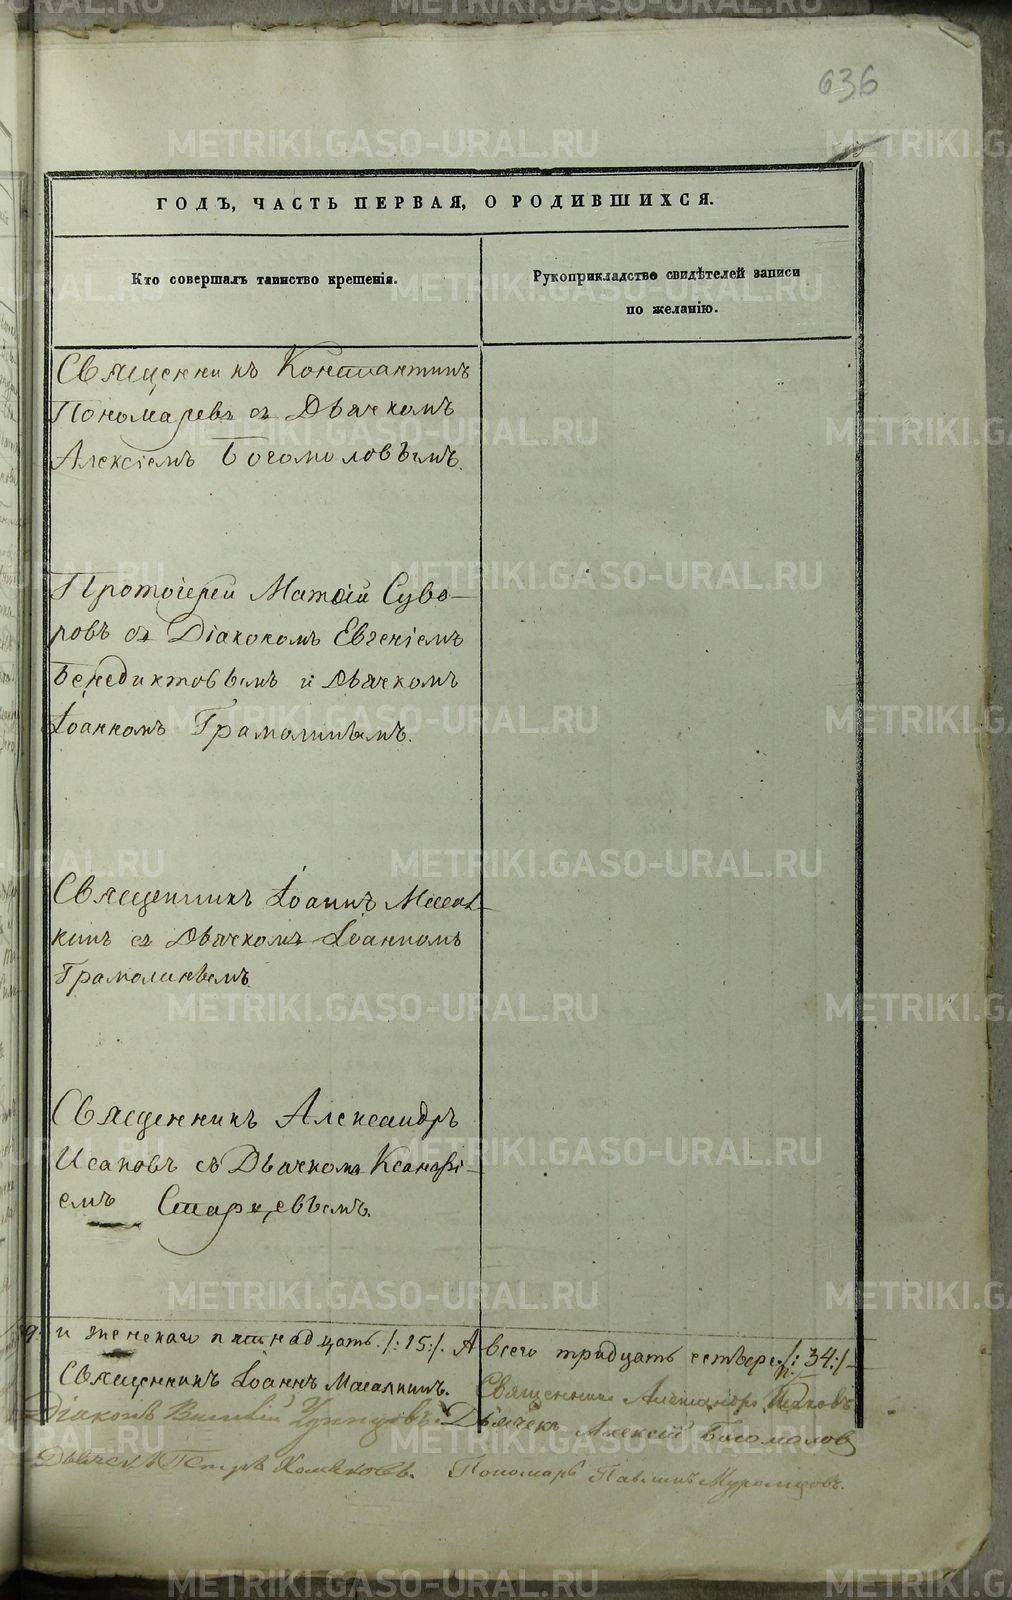 636
ГОДЪ, ЧАСТЬ ПЕРВАЯ, О РОДИВШИХСЯ.
Кто совершалъ таинство крещенія.
Рукоприкладство свидѣтелей записи
по желанію.
Священникъ Константинъ
Пономаревъ съ Дьячкомъ
Алексіемъ Богомоловымъ.
Протоіерей Матѳій Суво-
ровъ съ Діакономъ Евгеніемъ
Бенедиктовымъ и Дьячкомъ
Іоанномъ Грамолинымъ.
Священникъ Іоаннъ Масал-
кинъ съ Дьячкомъ Іоанномъ
Грамолинымъ.
Священникъ Александръ
Исаковъ съ Дьячкомъ Ксанфі-
емъ Старцевымъ.
и женскаго пятнадцать /:15:/. А всего тридцать четыре /:34:/-
Священникъ Іоаннъ Масалкинъ. Священникъ Александръ Исаковъ
Діаконъ Дьячекъ Алексій Богомолов
Дьячекъ Петръ Хомяковъ. Пономарь Павлинъ Муромцовъ.
METRIKI.GASO-URAL.RU